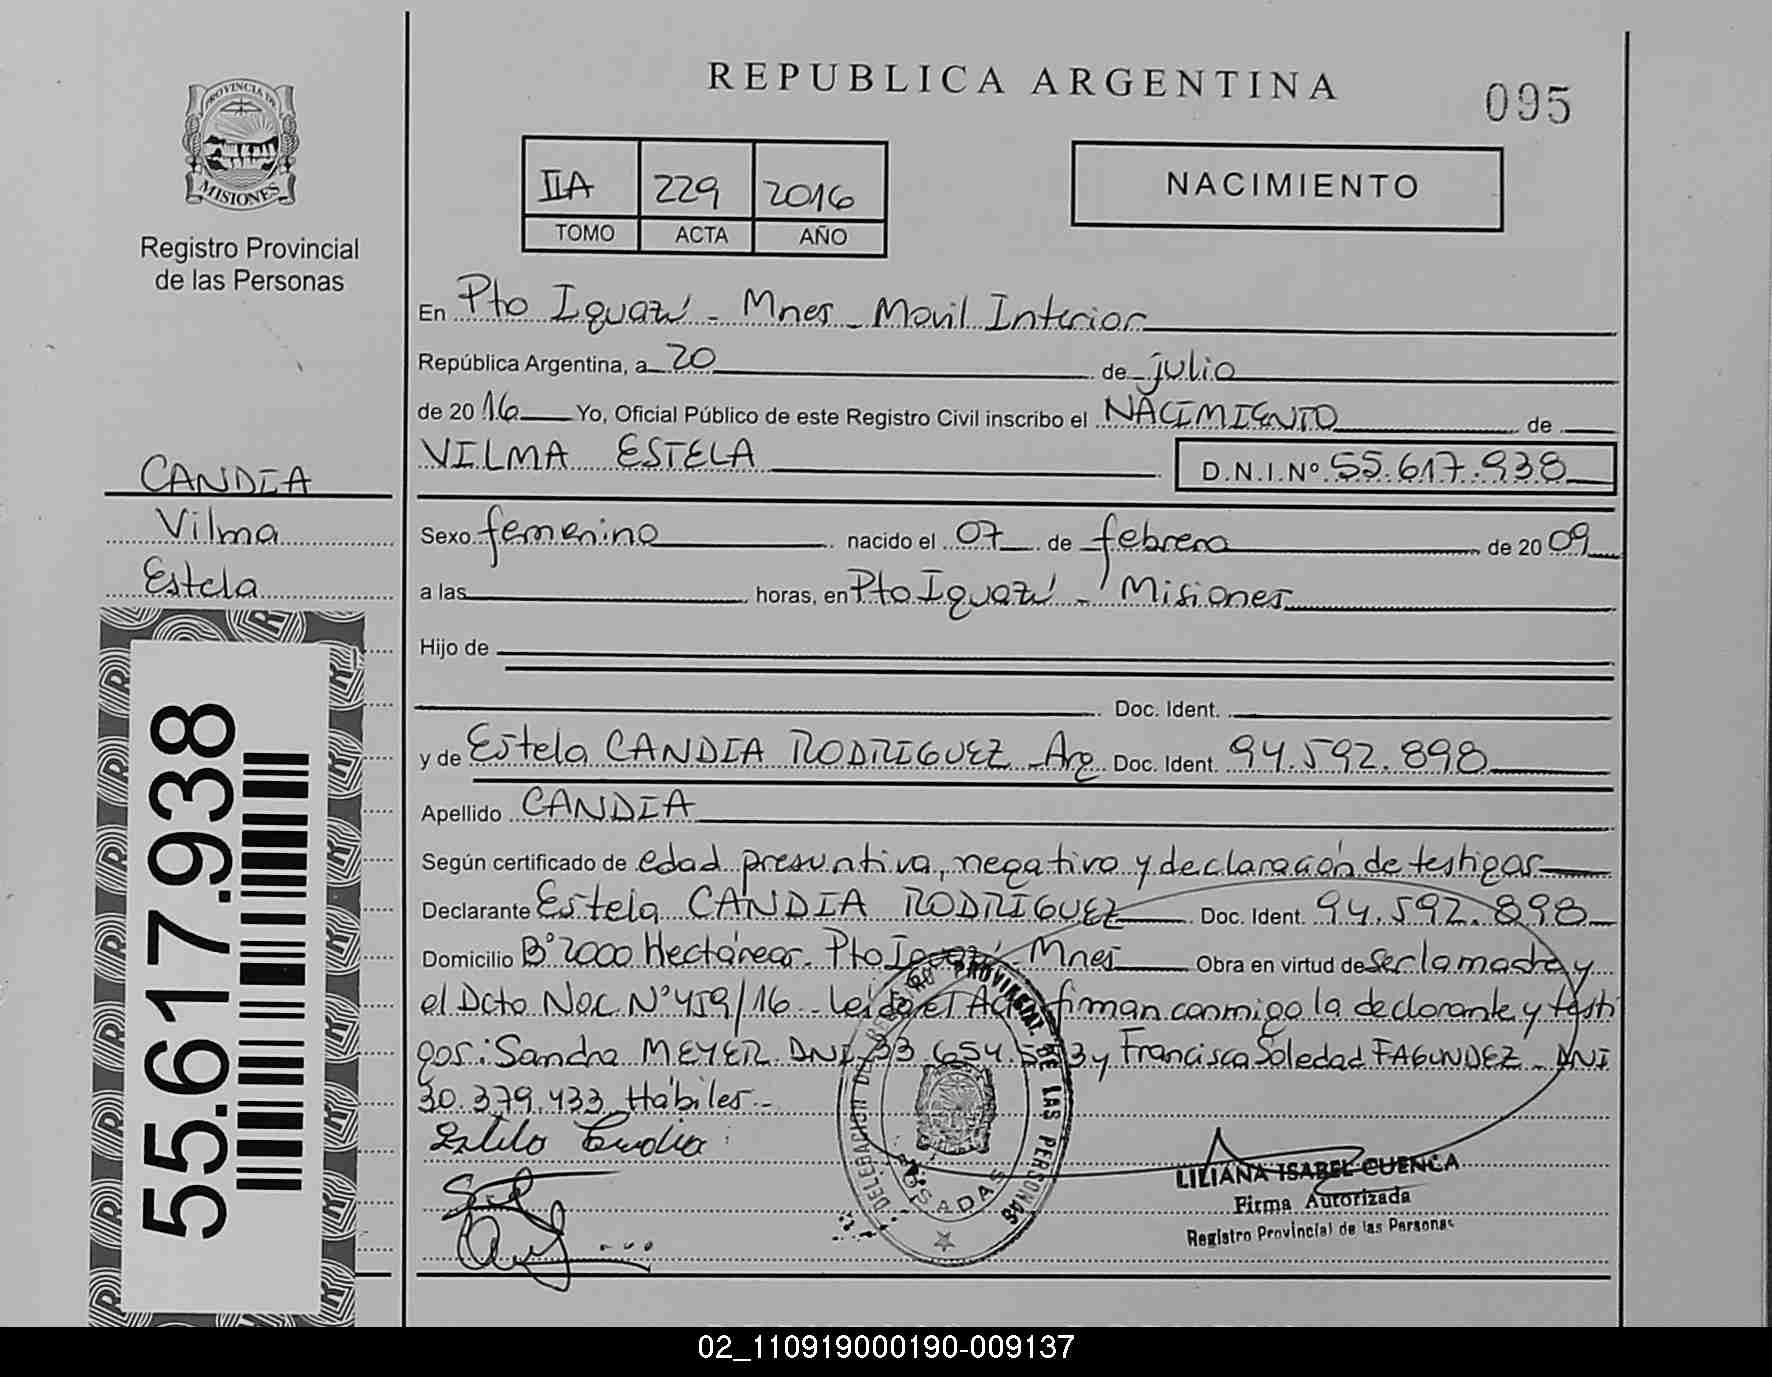 REPUBLICA ARGENTINA
095
PROVINCIA DE
MISIONES
Registro Provincial
de las Personas
IIA 229 2016
TOMO ACTA AÑO
NACIMIENTO
En Pto Iguazú - Mnes - Movil Interior
República Argentina, a 20 de julio
de 2016 Yo, Oficial Público de este Registro Civil inscribo el NACIMIENTO de
VILMA ESTELA D.N.I.Nº 55.617.938
CANDIA
Vilma
Estela
Sexo femenino nacido el 07 de febrero de 2009
a las horas, en Pto Iguazú - Misiones
Hijo de
Doc. Ident.
y de Estela CANDIA RODRIGUEZ - Arg Doc. Ident. 94.592.898
Apellido CANDIA
Según certificado de edad presuntiva, negativo y declaración de testigos
Declarante Estela CANDIA RODRIGUEZ Doc. Ident. 94.592.898
Domicilio Bº 2000 Hectáreas - Pto Iguazú - Mnes Obra en virtud de ser la madre y
el Dcto Nac. Nº 459/16 - Leída el Acta firman conmigo la declarante y testi
gos: Sandra MEYER DNI 33.654. 3 y Francisca Soledad FAGUNDEZ - DNI
30.379.433 Hábiles -
55.617.938
PROVINCIAL DE LAS PERSONAS
DELEGACION
POSADAS
LILIANA ISABEL CUENCA
Firma Autorizada
Registro Provincial de las Personas
02_110919000190-009137